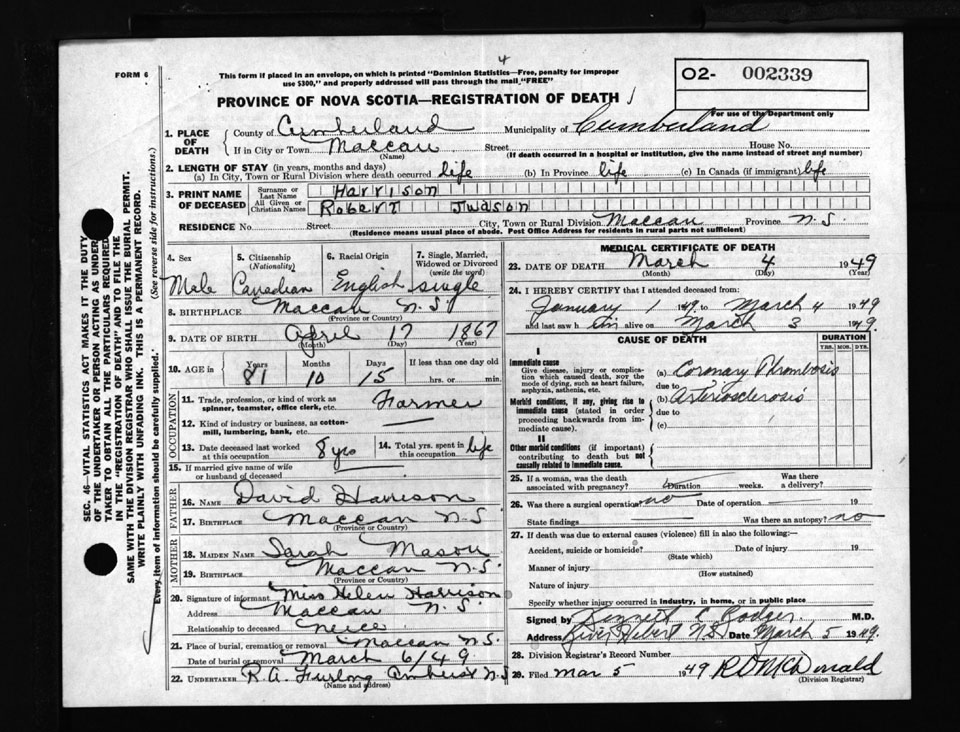 4
FORM 6
This form if placed in an envelope, on which is printed "Dominion Statistics—Free, penalty for improper
use $300," and properly addressed will pass through the mail "FREE"
O2- 002339
For use of the Department only
PROVINCE OF NOVA SCOTIA—REGISTRATION OF DEATH
1. PLACE OF DEATH { County of Cumberland Municipality of Cumberland
If in City or Town Maccan Street House No.
(Name) (If death occurred in a hospital or institution, give the name instead of street and number)
2. LENGTH OF STAY (in years, months and days)
(a) In City, Town or Rural Division where death occurred life (b) In Province life (c) In Canada (if immigrant) life
3. PRINT NAME OF DECEASED { Surname or Last Name Harrison
All Given or Christian Names Robert Judson
RESIDENCE No. Street City, Town or Rural Division Maccan Province N.S.
(Residence means usual place of abode. Post Office Address for residents in rural parts not sufficient)
4. Sex 5. Citizenship (Nationality) 6. Racial Origin 7. Single, Married, Widowed or Divorced (write the word)
Male Canadian English single
8. BIRTHPLACE Maccan N.S
(Province or Country)
9. DATE OF BIRTH April 17 1867
(Month) (Day) (Year)
10. AGE in { Years Months Days If less than one day old
81 10 15 hrs. or min.
OCCUPATION
11. Trade, profession, or kind of work as spinner, teamster, office clerk, etc. Farmer
12. Kind of industry or business, as cotton-mill, lumbering, bank, etc.
13. Date deceased last worked at this occupation 8 yrs 14. Total yrs. spent in this occupation life
15. If married give name of wife or husband of deceased
FATHER
16. NAME David Harrison
17. BIRTHPLACE Maccan N.S
(Province or Country)
MOTHER
18. MAIDEN NAME Sarah Mason
19. BIRTHPLACE Maccan N.S.
(Province or Country)
20. Signature of informant Miss Helen Harrison
Address Maccan N.S.
Relationship to deceased neice
21. Place of burial, cremation or removal Maccan N.S.
Date of burial or removal March 6/49
22. UNDERTAKER R.A. Furlong Amherst N.S
(Name and address)
MEDICAL CERTIFICATE OF DEATH
23. DATE OF DEATH March 4 1949
(Month) (Day) (Year)
24. I HEREBY CERTIFY that I attended deceased from:
January 1 1949 to March 4 1949
and last saw him alive on March 3 1949.
CAUSE OF DEATH DURATION
YRS. MOS. DYS.
I
Immediate cause
Give disease, injury or complication which caused death, not the mode of dying, such as heart failure, asphyxia, asthenia, etc.
(a) Coronary Thrombosis
due to
Morbid conditions, if any, giving rise to immediate cause (stated in order proceeding backwards from immediate cause).
(b) Arteriosclerosis
due to
(c)
II
Other morbid conditions (if important) contributing to death but not causally related to immediate cause.
25. If a woman, was the death associated with pregnancy? Duration weeks. Was there a delivery?
26. Was there a surgical operation? no Date of operation 19
State findings Was there an autopsy? no
27. If death was due to external causes (violence) fill in also the following:—
Accident, suicide or homicide? Date of injury 19
(State which)
Manner of injury
(How sustained)
Nature of injury
Specify whether injury occurred in industry, in home, or in public place
Signed by C Rodger M.D.
Address River Hebert N.S Date March 5 1949.
28. Division Registrar's Record Number
29. Filed Mar 5 1949 R D McDonald
(Division Registrar)
SEC. 46—VITAL STATISTICS ACT MAKES IT THE DUTY
OF THE UNDERTAKER OR PERSON ACTING AS UNDER-
TAKER TO OBTAIN ALL THE PARTICULARS REQUIRED
IN THE "REGISTRATION OF DEATH" AND TO FILE THE
SAME WITH THE DIVISION REGISTRAR WHO SHALL ISSUE THE BURIAL PERMIT.
WRITE PLAINLY WITH UNFADING INK. THIS IS A PERMANENT RECORD.
Every item of information should be carefully supplied. (See reverse side for instructions.)